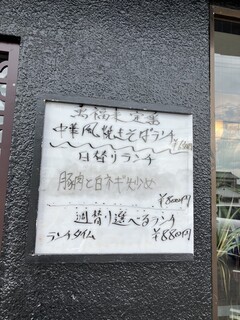 中華風焼きそばランチ
日替りランチ
豚肉と白ネギ炒め
¥800円
週替り選べるランチ
ランチタイム ¥880円